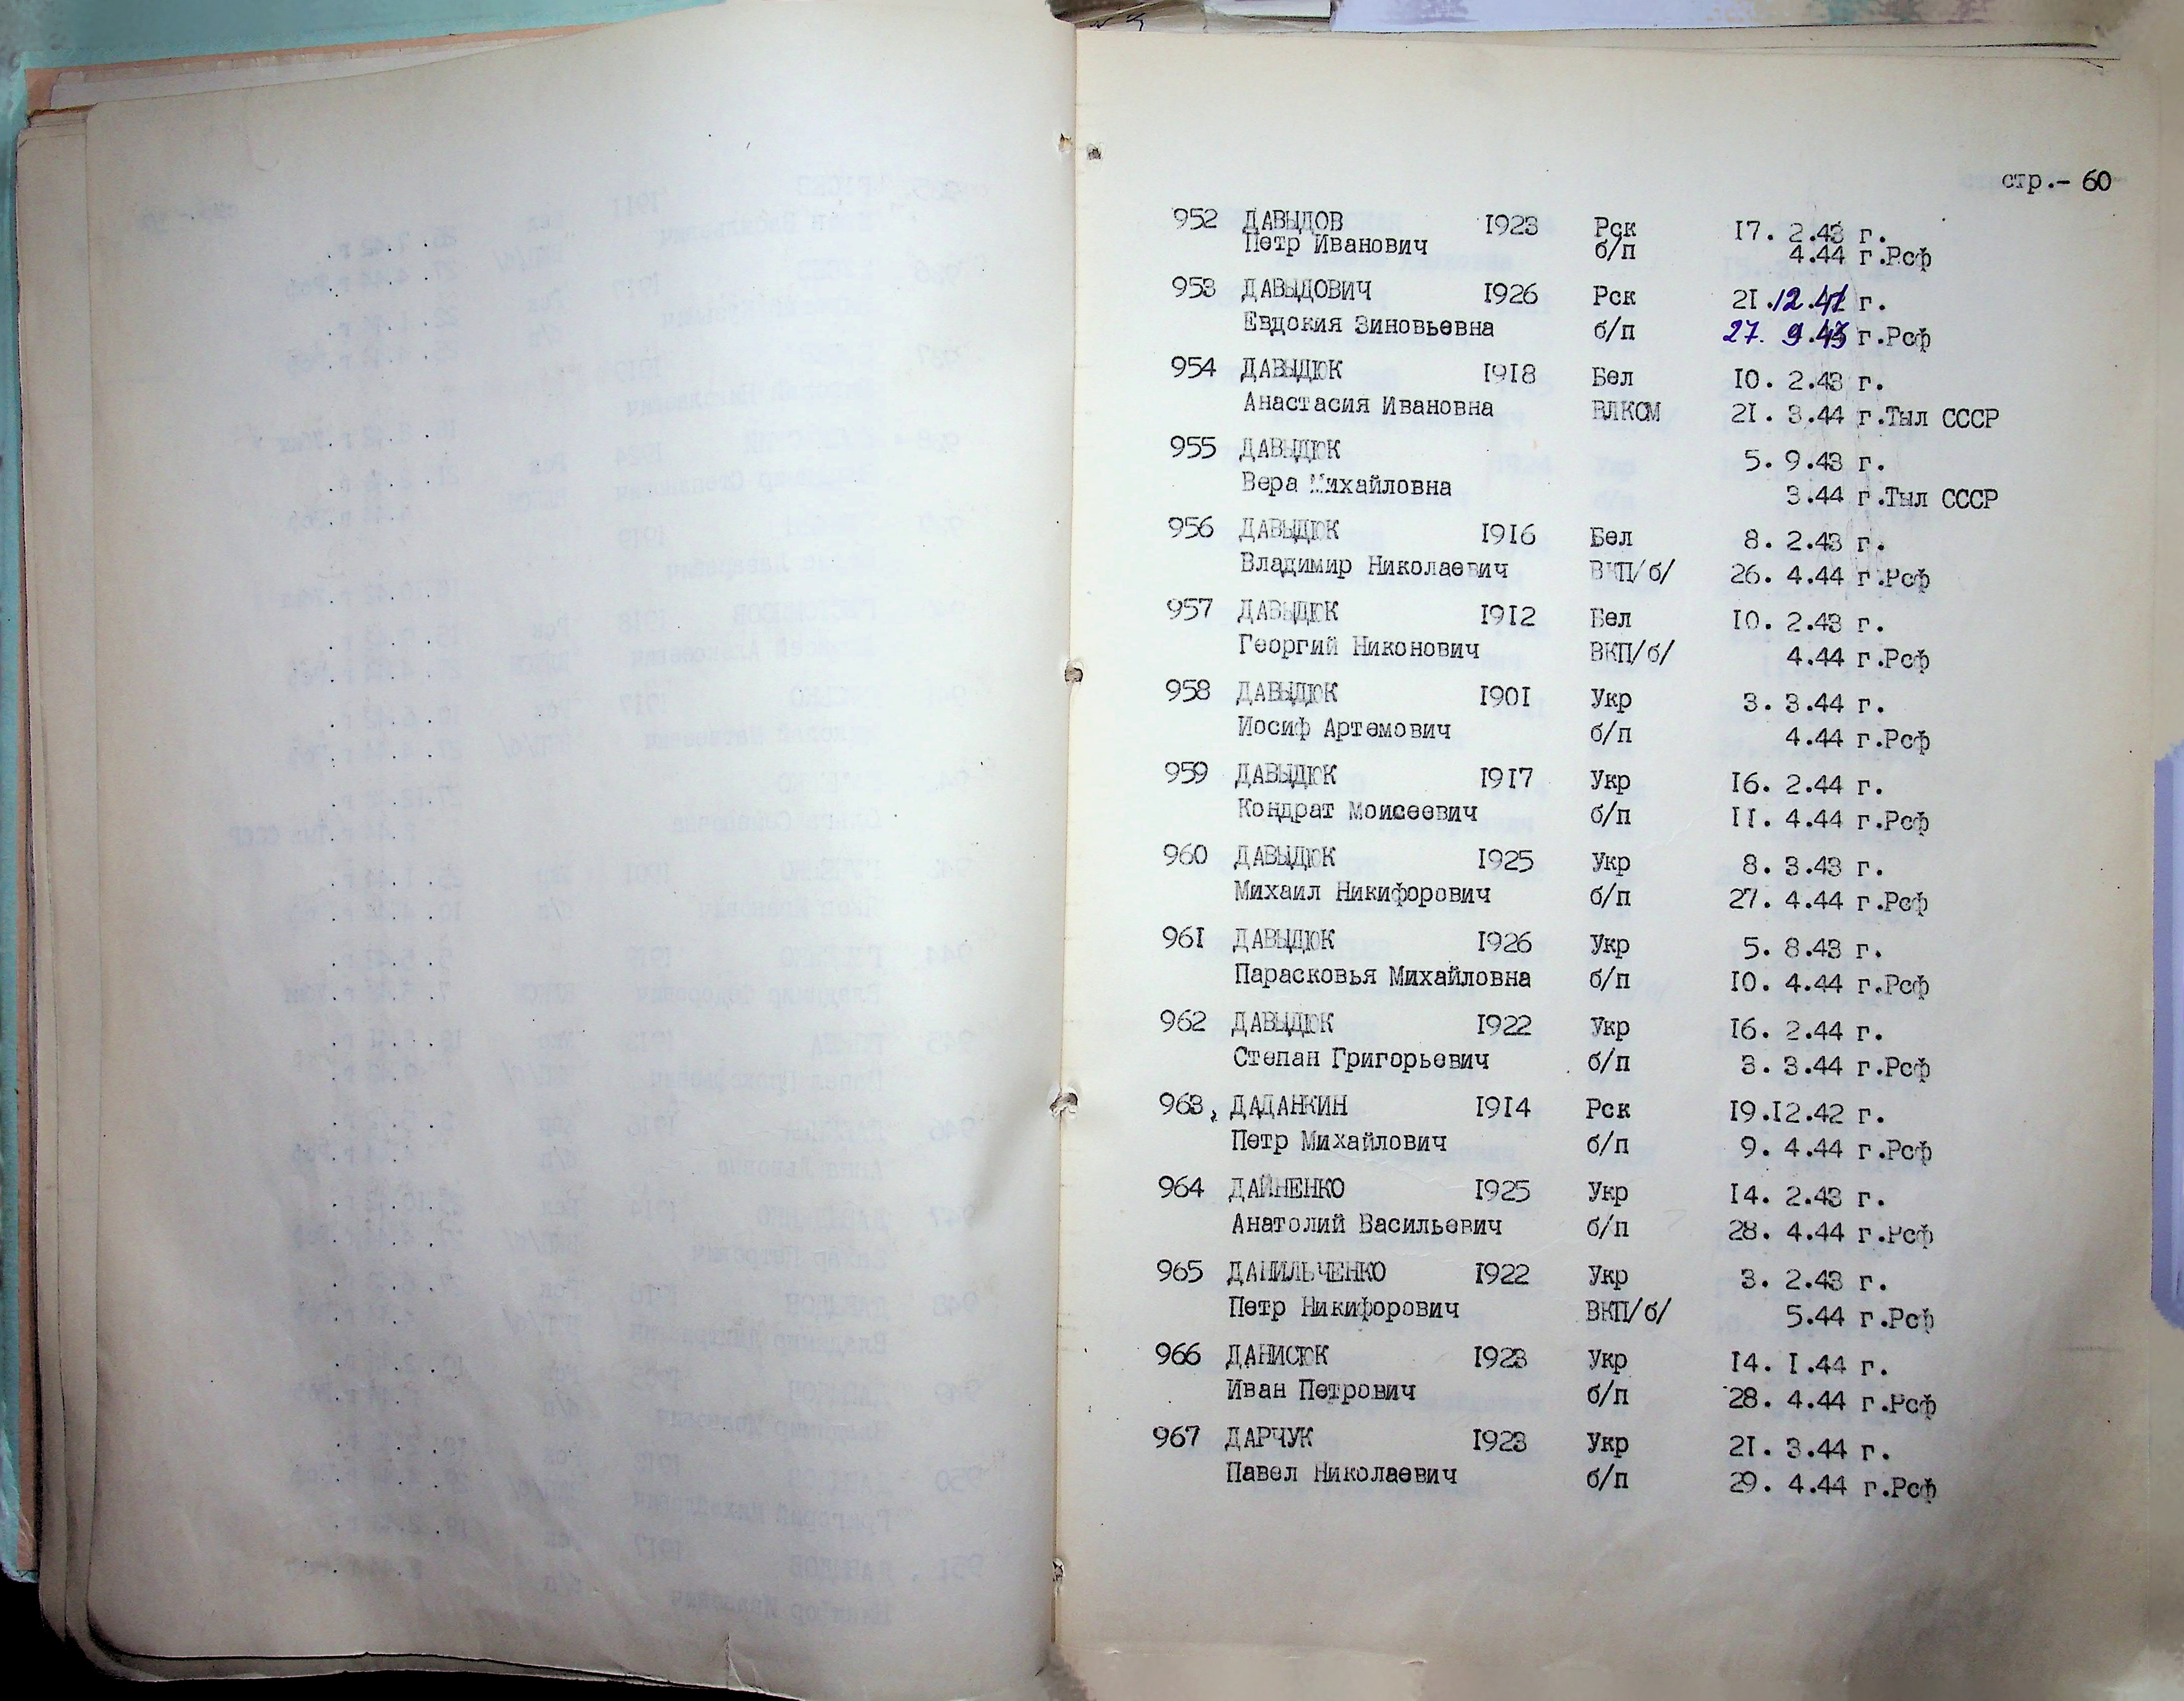 стр.- 60
952 ДАВЫДОВ 1923 Рск 17. 2.43 г.
Петр Иванович б/п 4.44 г.Рсф
953 ДАВЫДОВИЧ 1926 Рск 21.12.41 г.
Евдокия Зиновьевна б/п 27. 9.43 г.Рсф
954 ДАВЫДЮК 1918 Бел 10. 2.43 г.
Анастасия Ивановна ВЛКСМ 21. 3.44 г.Тыл СССР
955 ДАВЫДЮК 5. 9.43 г.
Вера Михайловна 3.44 г.Тыл СССР
956 ДАВЫДЮК 1916 Бел 8. 2.43 г.
Владимир Николаевич ВКП/б/ 26. 4.44 г.Рсф
957 ДАВЫДЮК 1912 Бел 10. 2.43 г.
Георгий Никонович ВКП/б/ 4.44 г.Рсф
958 ДАВЫДЮК 1901 Укр 3. 3.44 г.
Иосиф Артемович б/п 4.44 г.Рсф
959 ДАВЫДЮК 1917 Укр 16. 2.44 г.
Кондрат Моисеевич б/п 11. 4.44 г.Рсф
960 ДАВЫДЮК 1925 Укр 8. 3.43 г.
Михаил Никифорович б/п 27. 4.44 г.Рсф
961 ДАВЫДЮК 1926 Укр 5. 8.43 г.
Парасковья Михайловна б/п 10. 4.44 г.Рсф
962 ДАВЫДЮК 1922 Укр 16. 2.44 г.
Степан Григорьевич б/п 3. 3.44 г.Рсф
963, ДАДАНКИН 1914 Рск 19.12.42 г.
Петр Михайлович б/п 9. 4.44 г.Рсф
964 ДАЙНЕНКО 1925 Укр 14. 2.43 г.
Анатолий Васильевич б/п 28. 4.44 г.Рсф
965 ДАНИЛЬЧЕНКО 1922 Укр 3. 2.43 г.
Петр Никифорович ВКП/б/ 5.44 г.Рсф
966 ДАНИСЮК 1923 Укр 14. 1.44 г.
Иван Петрович б/п 28. 4.44 г.Рсф
967 ДАРЧУК 1923 Укр 21. 3.44 г.
Павел Николаевич б/п 29. 4.44 г.Рсф